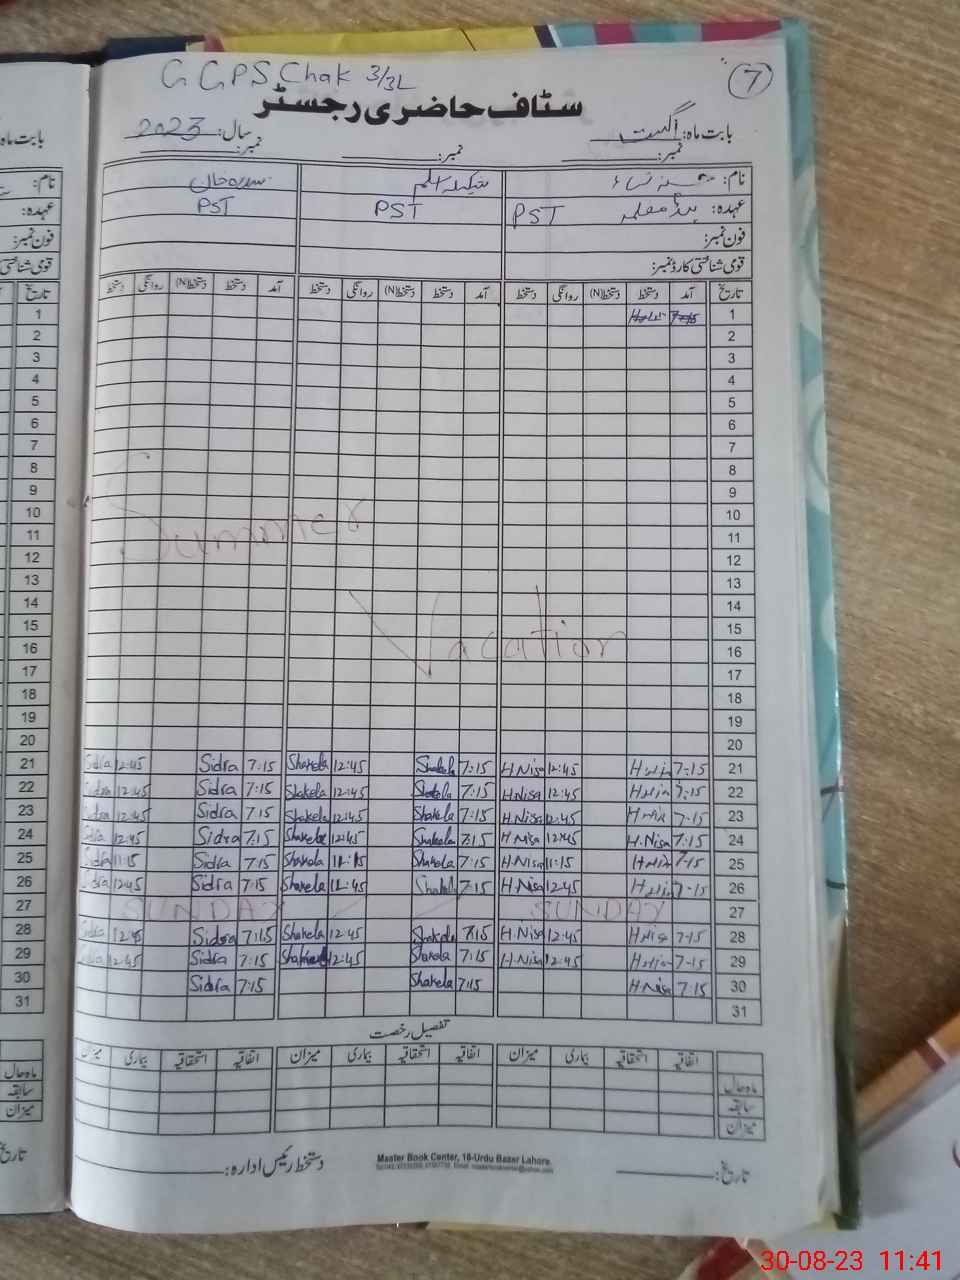 G GPS Chak 3/3L
7
سٹاف حاضری رجسٹر
بابت ماہ: اگست سال: 2023
نمبر: نمبر: نمبر:
نام: شکیلہ اسلم سدرہ خان
عہدہ: ہیڈ معلمہ PST PST PST
فون نمبر:
قومی شناختی کارڈ نمبر:
تاریخ آمد دستخط دستخط(N) روانگی دستخط آمد دستخط دستخط(N) روانگی دستخط آمد دستخط دستخط(N) روانگی دستخط
1 7-15
2
3
4
5
6
7
8
9
10
11
12
13
14
15
16
17
18
19
20
Summer
Vacation
Sidra 12:45 Sidra 7:15 Shakela 12:45 Shakela 7:15 H.Nisa 12:45 H.Nisa 7-15 21
Sidra 12:45 Sidra 7:15 Shakela 12:45 Shakela 7:15 H.Nisa 12:45 H.Nisa 7-15 22
Sidra 12:45 Sidra 7:15 Shakela 12:45 Shakela 7:15 H.Nisa 12:45 H.Nisa 7-15 23
Sidra 12:45 Sidra 7:15 Shakela 12:45 Shakela 7:15 H Nisa 12:45 H.Nisa 7:15 24
Sidra 11:15 Sidra 7:15 Shakela 11:15 Shakela 7:15 H.Nisa 11:15 H.Nisa 7-15 25
Sidra 12:45 Sidra 7:15 Shakela 12:45 Shakela 7:15 H.Nisa 12:45 H.Nisa 7-15 26
SUNDAY SUNDAY 27
Sidra 12:45 Sidra 7:15 Shakela 12:45 Shakela 7:15 H.Nisa 12:45 H.Nisa 7-15 28
Sidra 12:45 Sidra 7:15 12:45 Shakela 7:15 H.Nisa 12:45 H.Nisa 7-15 29
Sidra 7:15 Shakela 7:15 H.Nisa 7:15 30
31
تفصیل رخصت
اتفاقیہ استحقاقیہ بیماری میزان اتفاقیہ استحقاقیہ بیماری میزان اتفاقیہ استحقاقیہ بیماری میزان
ماہ حال
سابقہ
میزان
تاریخ: دستخط رئیس ادارہ:
Master Book Center, 16-Urdu Bazar Lahore.
بابت ماہ
نام:
عہدہ:
فون نمبر:
قومی شناختی
تاریخ
1
2
3
4
5
6
7
8
9
10
11
12
13
14
15
16
17
18
19
20
21
22
23
24
25
26
27
28
29
30
31
ماہ حال
سابقہ
میزان
تاریخ
30-08-23 11:41